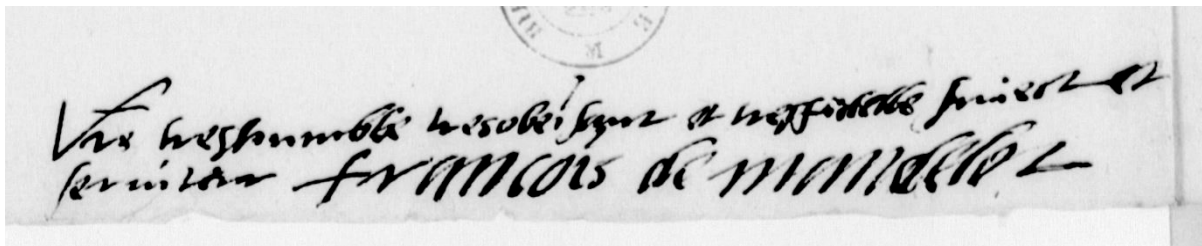 Vre treshumble tresobeissant et tresfidelle suiect et
seruiteur francois de mandelot